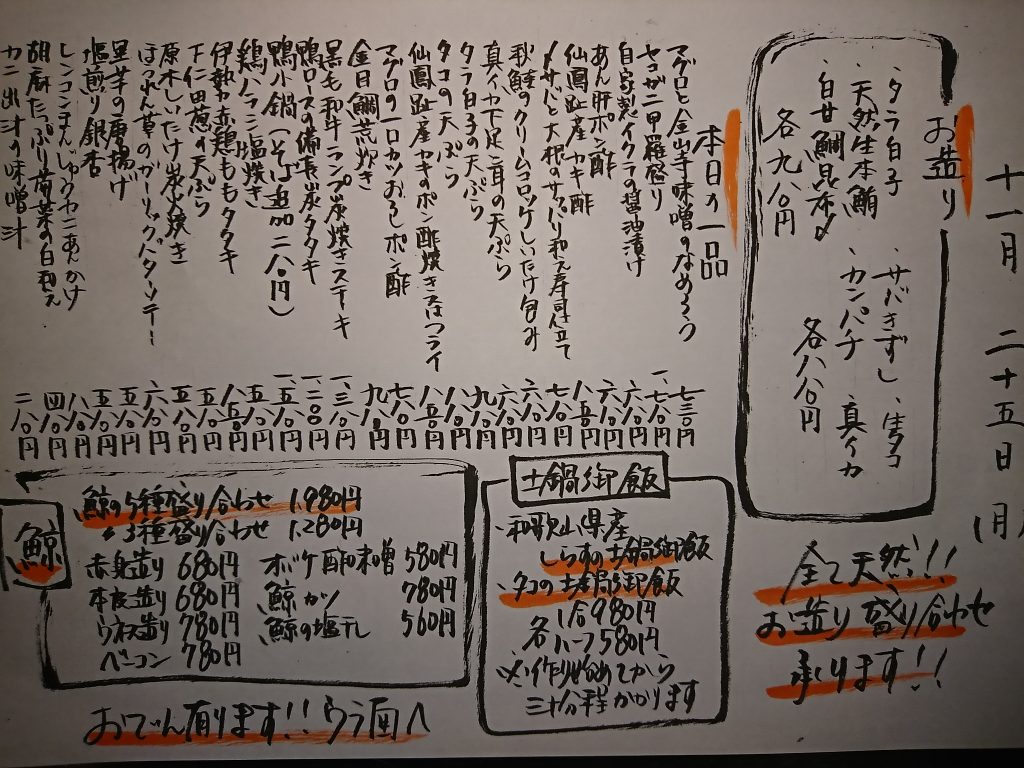 十一月 二十五日
お造り
・タラ白子
・天然生本鮪
・白甘鯛昆布〆
各九八〇円
・サバきずし ・生タコ
・カンパチ ・真イカ
各八八〇円
全て天然!!
お造り盛り合わせ
承ります!!
本日の一品
マグロと金山寺味噌のなめろう
セコガニ甲羅盛り
自家製イクラの醤油漬け
あん肝ポン酢
仙鳳趾産カキ酢
〆サバと大根のサッパリ和え寿司仕立て
秋鮭のクリームコロッケしいたけ包み
真イカ下足と耳の天ぷら
タラ白子の天ぷら
タコの天ぷら
仙鳳趾産カキのポン酢焼き又はフライ
マグロの一口カツおろしポン酢
金目鯛荒炊き
黒毛和牛ランプ炭焼きステーキ
鴨ロースの備長炭タタキ
鴨小鍋(そば追加二八〇円)
鶏ハラミ塩焼き
伊勢赤鶏ももタタキ
下仁田葱の天ぷら
原木しいたけ炭火焼き
ほうれん草のガーリックバターソテー
里芋の唐揚げ
塩煎り銀杏
レンコンまんじゅうカニあんかけ
胡麻たっぷり菊菜の白和え
カニ出汁の味噌汁
土鍋御飯
・和歌山県産
しらすの土鍋御飯
・タコの土鍋御飯
1合980円
各 ハーフ580円
※作り始めてから
三十分程かかります
鯨
鯨の5種盛り合わせ 1.980円
〃 3種盛り合わせ 1.280円
赤身造り 680円
本皮造り 680円
ウネス造り 780円
ベーコン 780円
オバケ酢味噌 580円
鯨カツ 780円
鯨の塩干し 560円
おでん有ります!!ウラ面へ